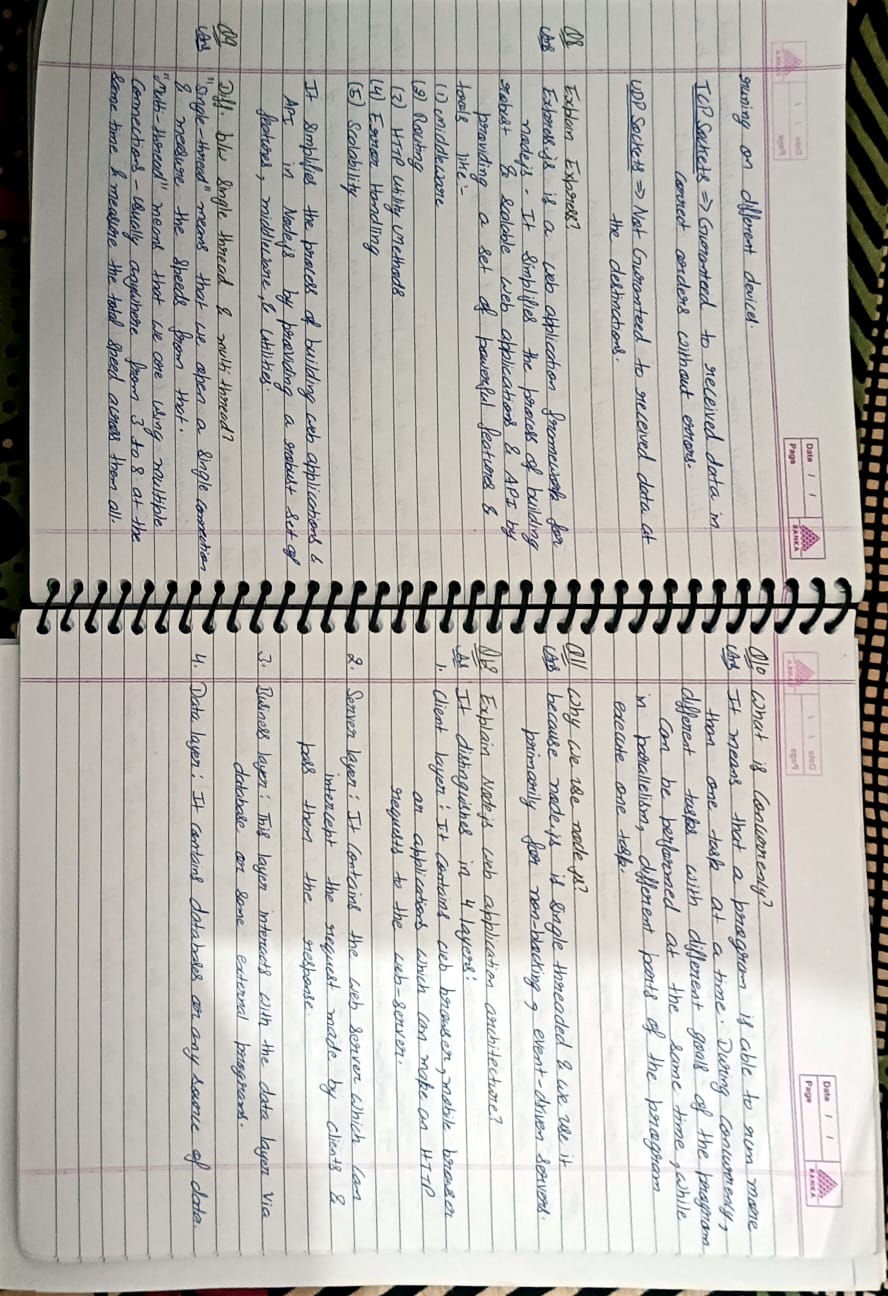 Date / /
Page
RANKA
runing on different devices.
TCP Sockets => Guaranteed to received data in
correct orders without errors.
UDP Sockets => Not Guaranteed to received data at
the destinations.
Q8 Explain Express?
Ans Express.js is a web application framework for
nodejs. It simplifies the process of building
robust & scalable web applications & API by
providing a set of powerful features &
tools like :-
(1) middleware
(2) Routing
(3) HTTP utility methods
(4) Error Handling
(5) Scalability
It simplifies the process of building web applications &
API in Nodejs by providing a robust set of
features, middleware, & utilities.
Q9 Diff. b/w single thread & multi thread?
Ans "Single-thread" means that we open a single connection
& measure the speeds from that.
"Multi-thread" means that we are using multiple
connections - usually anywhere from 3 to 8 at the
same time & measure the total speed across them all.
Date / /
Page
RANKA
Q10 What is Concurrency?
Ans It means that a program is able to run more
than one task at a time. During concurrency,
different tasks with different goals of the program
can be performed at the same time, while
in parallelism, different parts of the program
execute one task.
Q11 Why we use node js?
Ans because node.js is single threaded & we use it
primarily for non-blocking, event-driven servers.
Q12 Explain Nodejs web application architecture?
Ans It distinguishes in 4 layers:
1. Client layer: It contains web browser, mobile browser
or applications which can make an HTTP
requests to the web-server.
2. Server layer: It contains the web server which can
intercept the request made by clients &
pass them the response.
3. Business layer: This layer interacts with the data layer via
database or some external programs.
4. Data layer: It contains databases or any source of data.